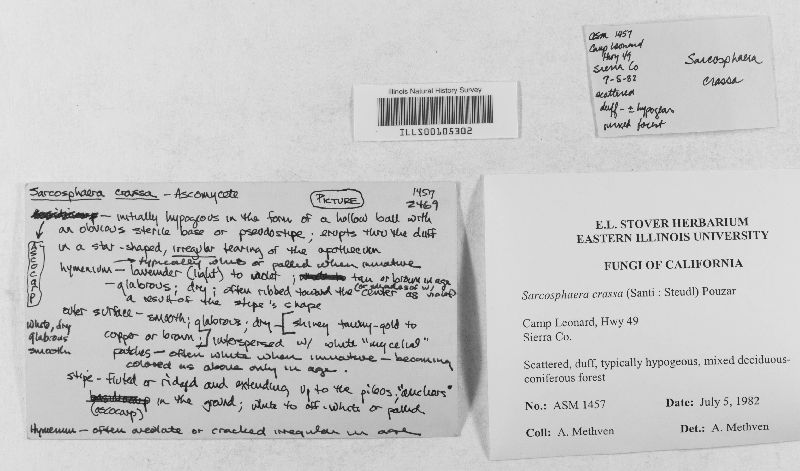 Illinois Natural History Survey
ILLS00105302
ASM 1457
Camp Leonard
Hwy 49
Sierra Co
7-5-82
scattered
duff - ± hypogeous
mixed forest
Sarcosphaera
crassa
Sarcosphaera crassa - Ascomycete
PICTURE
1457
2469
- initially hypogeous in the form of a hollow ball with
an obvious sterile base or pseudostipe; erupts thru the duff
in a star-shaped, irregular tearing of the apothecium
Ascocarp
typically white or pallid when immature
hymenium - lavender (light) to violet; tan or brown in age
(or shades of w/ violet)
- glabrous; dry; often ribbed toward the center as
a result of the stipe's shape
outer surface - smooth; glabrous; dry - shiney tawny-gold to
copper or brown; interspersed w/ white "mycelial"
patches - often white when immature - becoming
colored as above only in age.
white, dry
glabrous
smooth
stipe - fluted or ridged and extending up to the pileos; "anchors"
(ascocarp) in the ground; white to off-white or pallid
Hymenium - often areolate or cracked irregular in age
E.L. STOVER HERBARIUM
EASTERN ILLINOIS UNIVERSITY
FUNGI OF CALIFORNIA
Sarcosphaera crassa (Santi : Steudl) Pouzar
Camp Leonard, Hwy 49
Sierra Co.
Scattered, duff, typically hypogeous, mixed deciduous-
coniferous forest
No.: ASM 1457 Date: July 5, 1982
Coll: A. Methven Det.: A. Methven